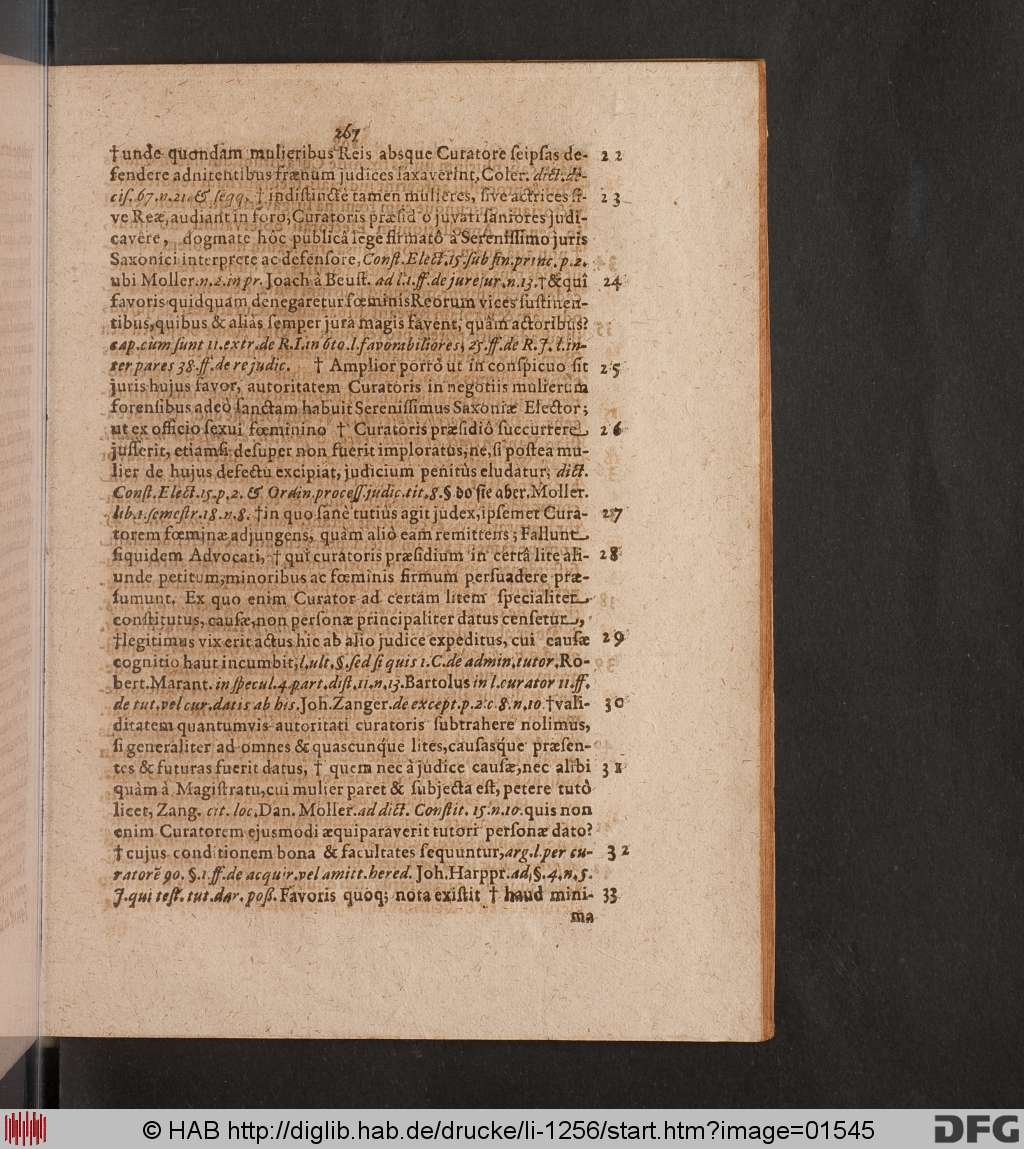 267
†unde quondam mulieribus Reis absque Curatore ſeipſas de- 22
fendere adnitentibus frænum judices laxaverint, Coler. dict. de-
ciſ. 67. n. 21. & ſeqq. † indiſtinctè tamen mulieres, ſive actrices ſi- 23
ve Reæ, audiant in foro, Curatoris præſidio juvati ſaniores judi-
cavêre, dogmate hôc publicâ lege firmatô â Sereniſſimo juris
Saxonici interprete ac defenſore, Conſt. Elect. 15. ſub fin. princ. p. 2.
ubi Moller. n. 2. in pr. Joach à Beuſt. ad l. 1. ff. de jurejur. n. 13. †&quî 24
favoris quidquam denegaretur fœminis Reorum vices ſuſtinen-
tibus, quibus & aliàs ſemper jura magis favent, quàm actoribus?
cap. cum ſunt 11. extr. de R. I. in 6to. l. favorabiliores, 25. ff. de R. J. l. in-
ter pares 38. ff. de re judic. † Amplior porrò ut in conſpicuo ſit 25
juris hujus favor, autoritatem Curatoris in negotiis mulierum
forenſibus adeò ſanctam habuit Sereniſſimus Saxoniæ Elector;
ut ex officio ſexui fœminino † Curatoris præſidiô ſuccurrere 26
juſſerit, etiamſi deſuper non fuerit imploratus, ne, ſi poſtea mu-
lier de hujus defectu excipiat, judicium penitùs eludatur, dict.
Conſt. Elect. 15. p. 2. & Ordin. proceſſ. judic. tit. 8. § do ſie aber. Moller.
lib. 1. ſemeſtr. 18. n. 8. †in quo ſanè tutius agit judex, ipſemet Cura- 27
torem fœminæ adjungens, quàm aliò eam remittens; Fallunt
ſiquidem Advocati, † qui curatoris præſidium in certâ lite ali- 28
unde petitum, minoribus ac fœminis firmum perſuadere præ-
ſumunt. Ex quo enim Curator ad certam litem ſpecialiter
conſtitutus, cauſæ, non perſonæ principaliter datus cenſetur,
†legitimus vix erit actus hic ab alio judice expeditus, cui cauſæ 29
cognitio haut incumbit, l. ult. §. ſed ſi quis 1. C. de admin. tutor. Ro-
bert. Marant. in ſpecul. 4. part. diſt. 11. n. 13. Bartolus in l. curator 11. ff.
de tut. vel cur. datis ab his. Joh. Zanger. de except. p. 2. c 8. n. 10. †vali- 30
ditatem quantumvis autoritati curatoris ſubtrahere nolimus,
ſi generaliter ad omnes & quascunque lites, cauſasque præſen-
tes & futuras fuerit datus, † quem nec à judice cauſæ, nec alibi 31
quàm à Magiſtratu, cui mulier paret & ſubjecta eſt, petere tutô
licet, Zang. cit. loc. Dan. Moller. ad dict. Conſtit. 15. n. 10. quis non
enim Curatorem ejusmodi æquiparaverit tutori perſonæ dato?
† cujus conditionem bona & facultates ſequuntur, arg. l. per cu- 32
ratorẽ 90. §. 1. ff. de acquir. vel amitt. hered. Joh. Harppr. ad, §. 4. n. 5.
J. qui teſt. tut. dar. poß. Favoris quoq; nota exiſtit † haud mini- 33
ma
© HAB http://diglib.hab.de/drucke/li-1256/start.htm?image=01545
DFG